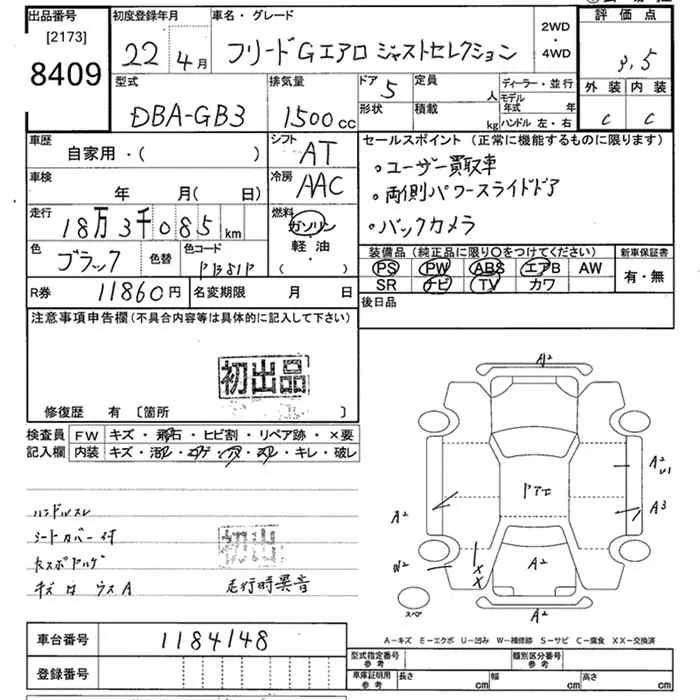 出品番号
[2173]
8409
初度登録年月
22年4月
車名・グレード
フリードGエアロ ジャストセレクション
2WD
・
4WD
評価点
3.5
外装 内装
C C
型式
DBA-GB3
排気量
1500cc
ドア
5
形状
定員
人
積載
kg
ディーラー・並行
モデル年式 年
ハンドル 左・右
車歴
自家用・( )
シフト
AT
車検
年 月( 日)
冷房
AAC
走行
18万3千085km
燃料
ガソリン
・
軽油
・
( )
色
ブラック
色替
色コード
セールスポイント(正常に機能するものに限ります)
。ユーザー買取車
。両側パワースライドドア
。バックカメラ
装備品(純正品に限り〇をつけてください)
PS PW ABS エアB AW
SR ナビ TV カワ
新車保証書
有・無
R券
11860円
名変期限 月 日
後日品
注意事項申告欄(不具合内容等は具体的に記入して下さい)
初出品
修復歴 有 〔箇所 〕
検査員
記入欄
FW キズ・飛石・ヒビ割・リペア跡・×要
内装 キズ・汚レ・コゲ・穴・スレ・キレ・破レ
ハンドルスレ
シートカバー付
初出
キズ
ウスA
走行時異音
A2
A2
U1
A3
A2
W2
ドアエ
X
X
A2
A2
スペア
A-キズ E-エクボ U-凹み W-補修跡 S-サビ C-腐食 XX-交換済
車台番号
1184148
登録番号
型式指定番号
参考
類別区分番号
参考
車庫証明用
参考
長さ cm
幅 cm
高さ cm